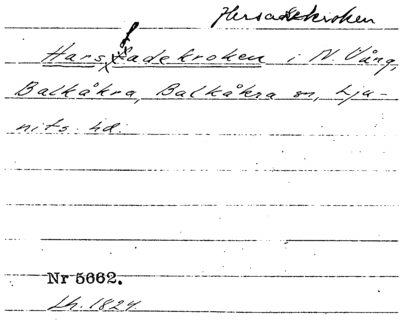 Hersadekroken
Harsadekroken i N. Vång,
Balkåkra, Balkåkra sn, Lju-
nits hd.
Nr 5662.
Lh. 1824